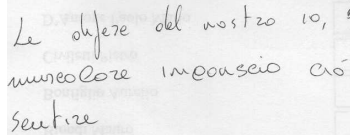 Le difese del nostro io,
muscolare inconscio ciò
sentire